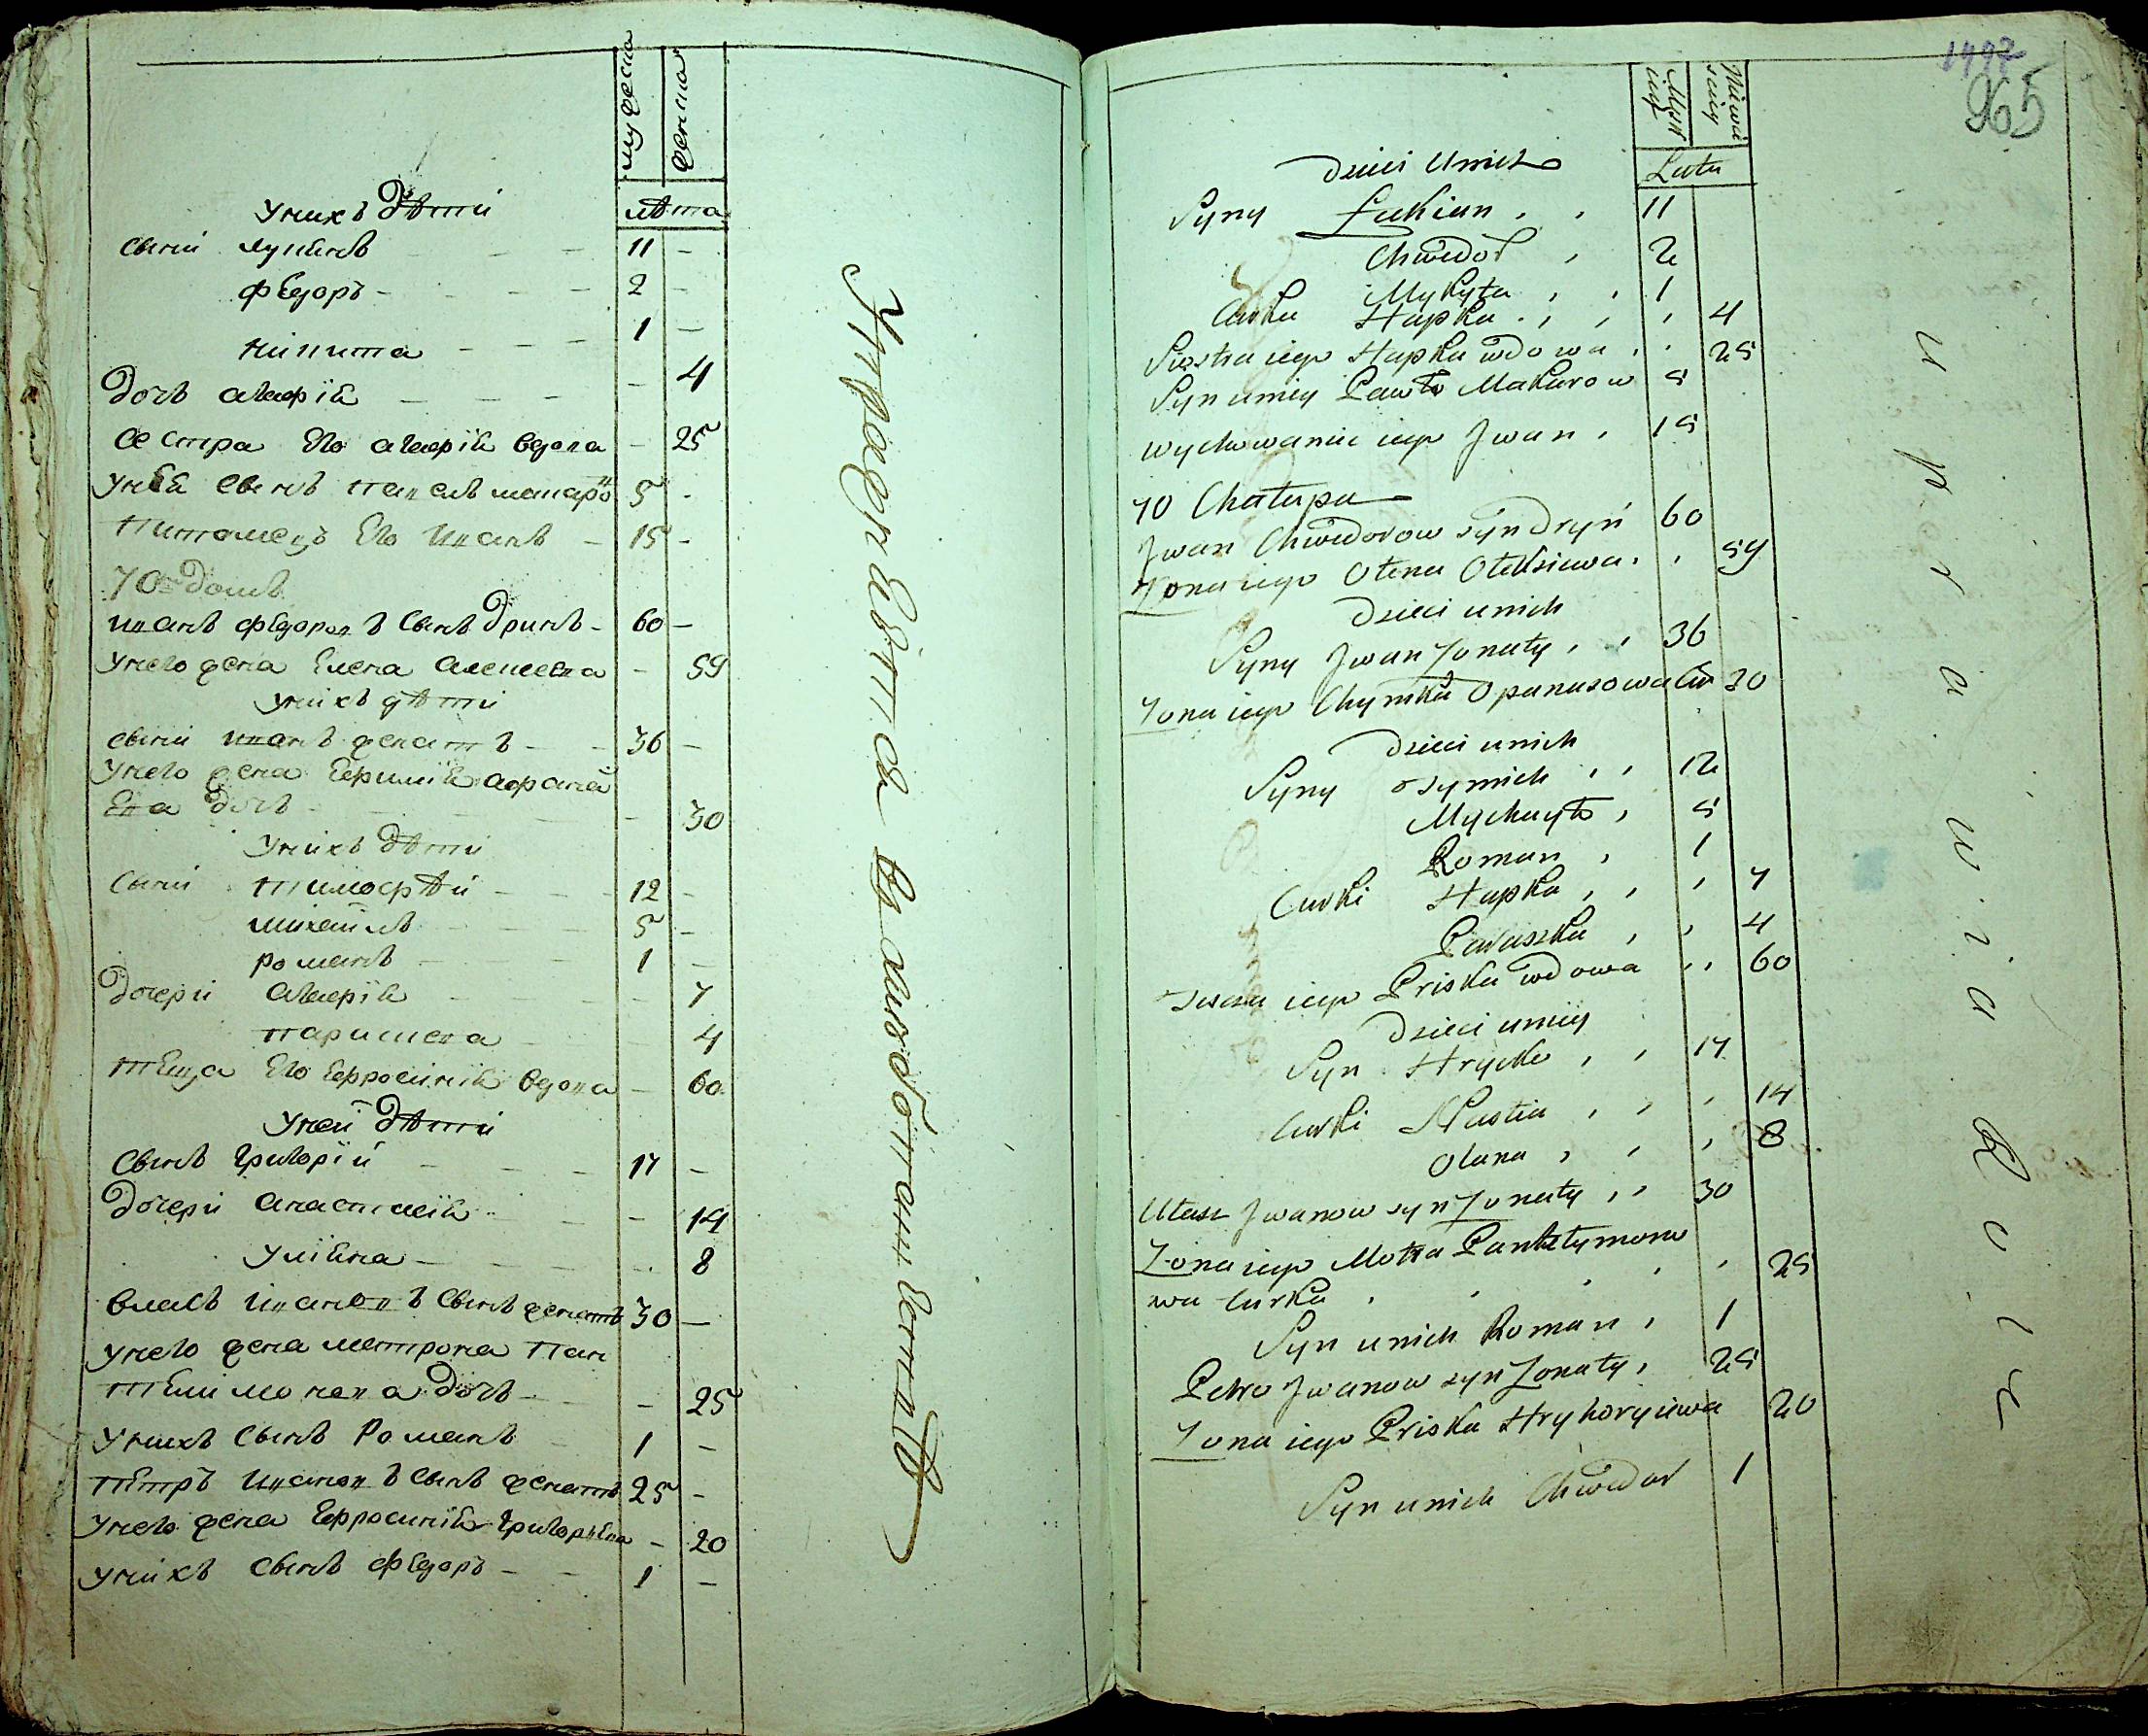 мужеска
женска
лѣта
У нихъ дѣти
Сыни Лукьянъ - - - 11 -
Федоръ - - - 2 -
Никита - - - 1 -
Дочь Агафія - - - - 4
Сестра его Агафія вдова - 25
У нея сынъ Павелъ Макаро 5 -
Питомецъ его Иванъ - 15 -
70 домъ
Иванъ Федоровъ сынъ Дринь - 60 -
У него жена Елена Алексѣева - 59
У нихъ дѣти
Сыни Иванъ женатъ - - 36 -
У него жена Ефимія Афанась
ева дочь - - - 30
У нихъ дѣти
Сыни Тимофѣй - - - 12 -
Михаилъ - - - 5 -
Романъ - - - 1 -
Дочери Агафія - - - - 7
Парискева - - 4
Теща его Ефросинія вдова - 60
У ней дѣти
Сынъ Григорій - - - 17 -
Дочери Анастасія - - - 14
Уліяна - - - 8
Власъ Ивановъ сынъ женатъ 30 -
У него жена Матрона Пан
телимонова дочь - - 25
У нихъ сынъ Романъ - 1 -
Петръ Ивановъ сынъ женатъ 25 -
У него жена Ефросинія Григорьева - 20
У нихъ сынъ Федоръ - - 1 -
965
Lata
Dzieci u nich
Syny Łukian , , 11
Chwedor , 2
Mykyta , , 1
Curka Hapka , , , 4
Siostra iego Hapka wdowa , , 25
Syn u niey Pawło Makarow 5
Wychowaniec iego Jwan , 15
70 Chałupa
Jwan Chwedorow syn Dryń 60
Zona iego Ołena Ołeksiewa , , 59
Dzieci u nich
Syny Jwan Zonaty , , 36
Zona iego Chymka Opanasowa Cór 30
Dzieci u nich
Syny Tymich , , 12
Mychayło , 5
Roman , 1
Curki Hapka , , , 7
Paraszka , , 4
Tescza iego Priska wdowa , , 60
Dzieci u niey
Syn Hrycko , , 17
Curki Nastia , , , 14
Olana , , , 8
Ułas Jwanow syn Zonaty , , 30
Zona iego Motra Pantełymono
wa Curka , , , , , 25
Syn u nich Roman , 1
Petro Jwanow syn Zonaty , 25
Zona iego Priska Hryhoryiewa 20
Syn u nich Chwedor 1